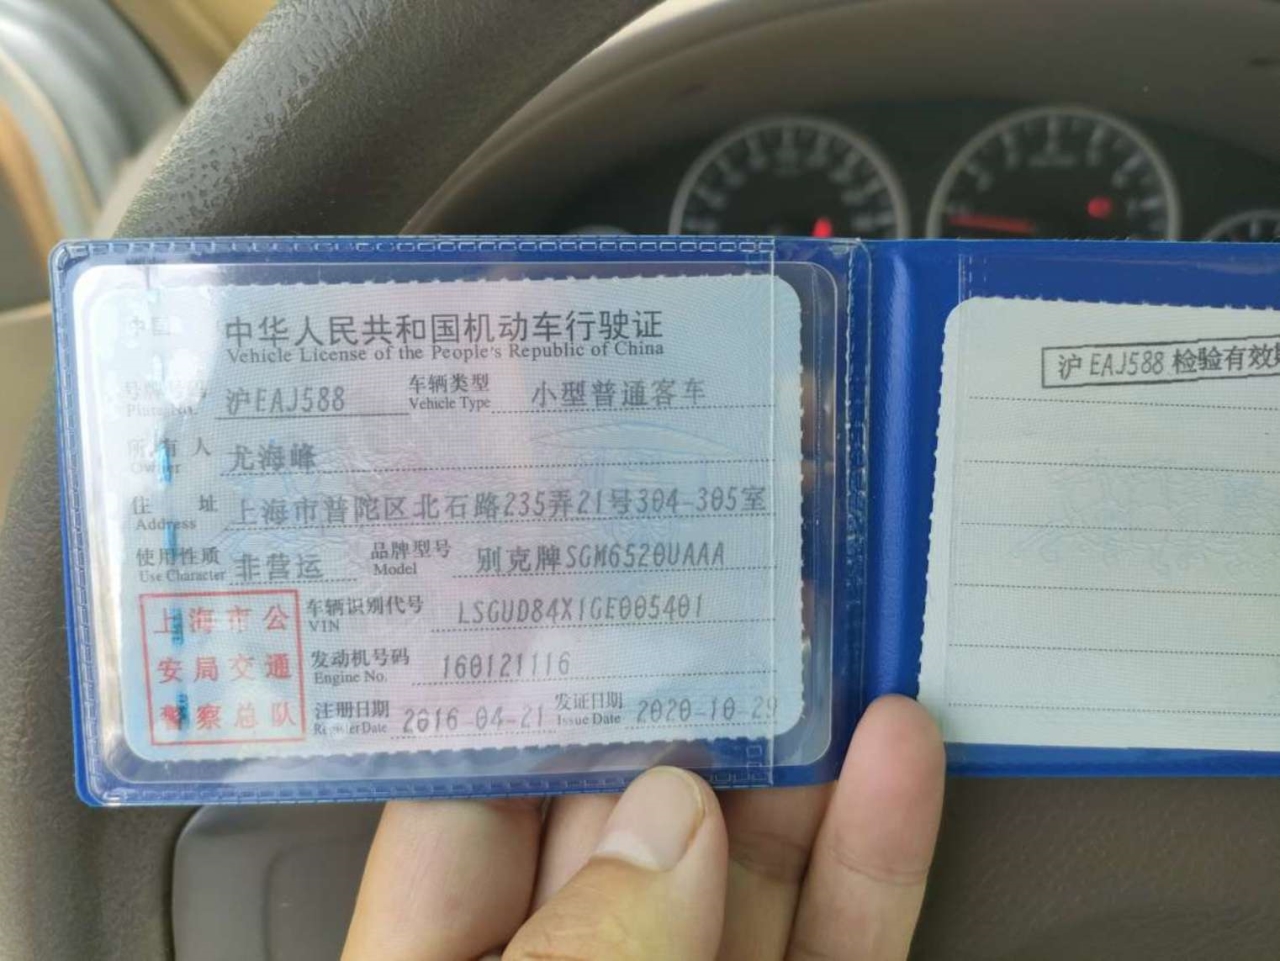 中华人民共和国机动车行驶证
Vehicle License of the People's Republic of China
号牌号码 沪EAJ588 车辆类型 小型普通客车
Plate No. Vehicle Type
所有人 尤海峰
Owner
住址 上海市普陀区北石路235弄21号304-305室
Address
使用性质 非营运 品牌型号 别克牌SGM6520UAAA
Use Character Model
上海市公
安局交通
警察总队
车辆识别代号 LSGUD84X1GE005401
VIN
发动机号码 160121116
Engine No.
注册日期 2016-04-21 发证日期 2020-10-29
Register Date Issue Date
沪EAJ588 检验有效期